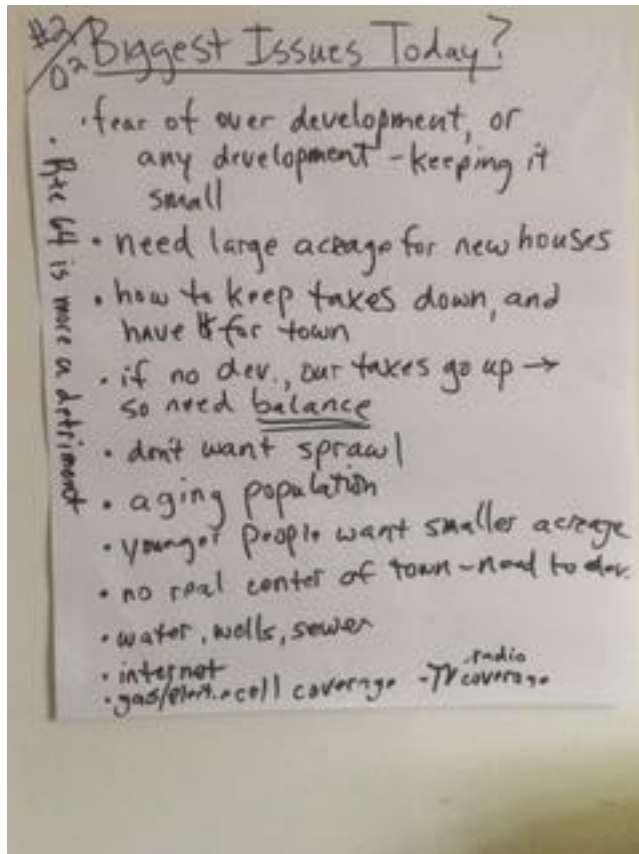 #2/Q2 Biggest Issues Today?
• fear of over development, or
any development - keeping it
small
• need large acreage for new houses
• how to keep taxes down, and
have $ for town
• if no dev., our taxes go up →
so need balance
• don't want sprawl
• aging population
• younger people want smaller acreage
• no real center of town - need to dev.
• water, wells, sewer
• internet
• gas/elect. • cell coverage - TV coverage
• radio
• Rte 64 is more a detriment